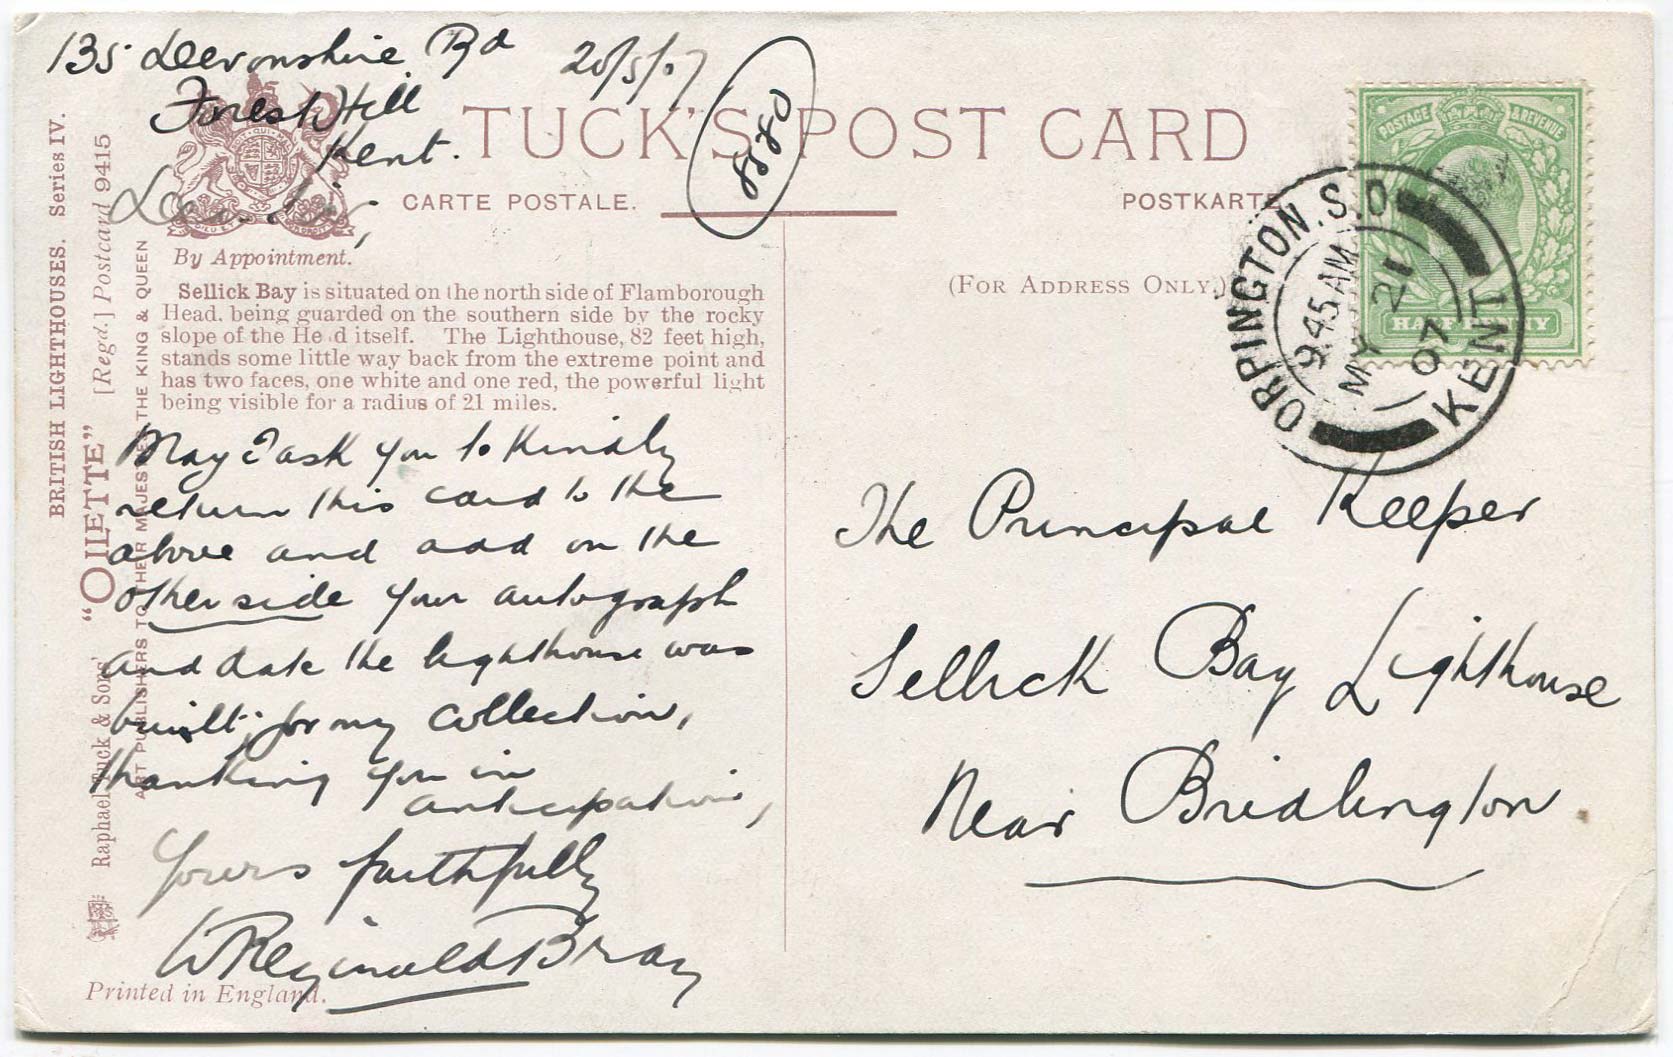 135 Devonshire Rd
20/5/07
Forest Hill
Kent.
Dear Sir,
8880
TUCK'S POST CARD
CARTE POSTALE.
POSTKARTE
By Appointment.
(FOR ADDRESS ONLY.)
Sellick Bay is situated on the north side of Flamborough
Head, being guarded on the southern side by the rocky
slope of the He d itself. The Lighthouse, 82 feet high,
stands some little way back from the extreme point and
has two faces, one white and one red, the powerful light
being visible for a radius of 21 miles.
May I ask you to kindly
return this card to the
above and add on the
other side your autograph
and date the lighthouse was
built, for my collection,
thanking you in
anticipation,
Yours faithfully
W Reginald Bray
Printed in England.
BRITISH LIGHTHOUSES. Series IV.
Raphael Tuck & Sons' "OILETTE" [Regd.] Postcard 9415
ART PUBLISHERS TO THEIR MAJESTIES THE KING & QUEEN
POSTAGE & REVENUE
HALFPENNY
ORPINGTON. S.O.
9.45 AM
MY 21
07
KENT
The Principal Keeper
Sellick Bay Lighthouse
Near Bridlington